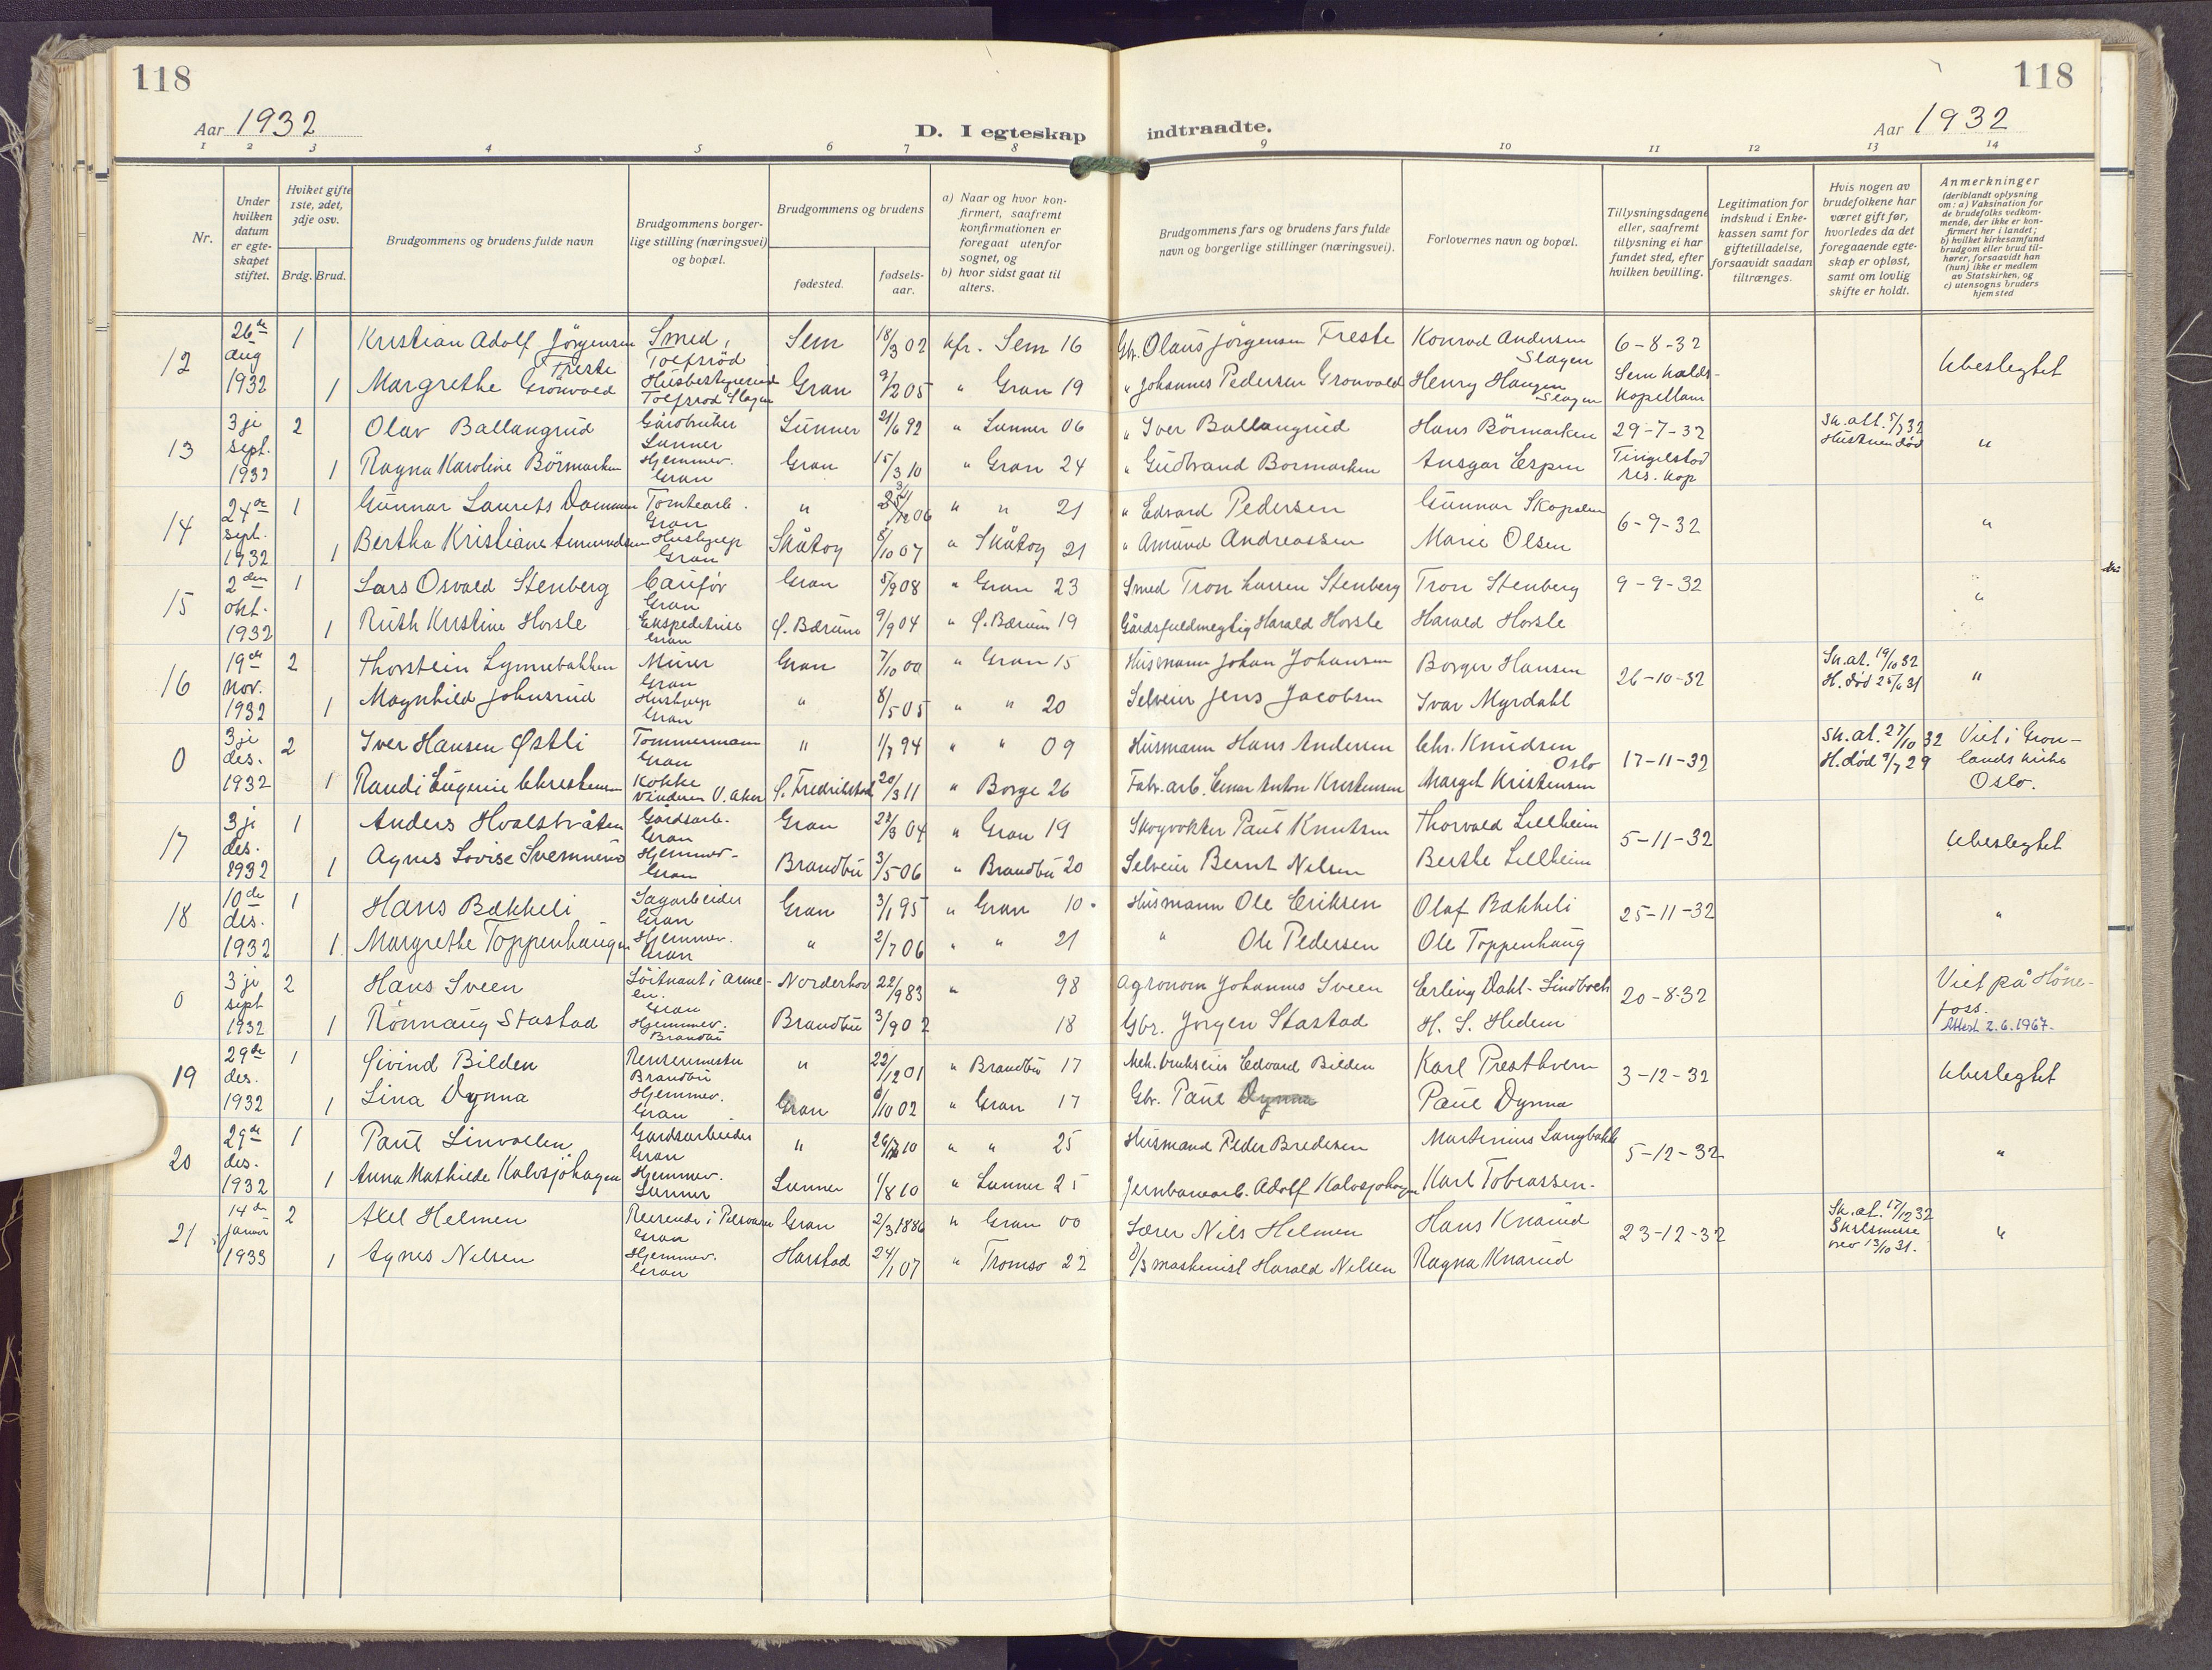 118
118
Aar 1932
D. I egteskap indtraadte.
Aar 1932
1 2 3 4 5 6 7 8 9 10 11 12 13 14
Nr.
Under hvilken datum er egteskapet stiftet.
Hvilket gifte 1ste, 2det, 3dje osv.
Brdg. Brud.
Brudgommens og brudens fulde navn
Brudgommens borgerlige stilling (næringsvei) og bopæl.
Brudgommens og brudens
fødested.
fødselsaar.
a) Naar og hvor konfirmert, saafremt konfirmationen er foregaat utenfor sognet, og
b) hvor sidst gaat til alters.
Brudgommens fars og brudens fars fulde navn og borgerlige stillinger (næringsvei).
Forlovernes navn og bopæl.
Tillysningsdagene eller, saafremt tillysning ei har fundet sted, efter hvilken bevilling.
Legitimation for indskud i Enkekassen samt for giftetilladelse, forsaavidt saadan tiltrænges.
Hvis nogen av brudefolkene har været gift før, hvorledes da det foregaaende egteskap er opløst, samt om lovlig skifte er holdt.
Anmerkninger (deriblandt oplysning om: a) Vaksination for de brudefolks vedkommende, der ikke er konfirmert her i landet; b) hvilket kirkesamfund brudgom eller brud tilhører, forsaavidt han (hun) ikke er medlem av Statskirken, og c) utensogns bruders hjemsted
12 26de aug 1932 1 Kristian Adolf Jörgensen Freste Smed, Tolfsröd Sem 18/3 02 kfr. Sem 16 Gbr. Olaus Jörgensen Freste Konrad Andersen Slagen 6-8-32 Ubeslegtet
1 Margrethe Grönvold Husbestyrerinde Tolfsrod Slagen Gran 9/2 05 " Gran 19 " Johannes Pedersen Gronvold Henry Haugen Slagen Sem kalds-kapellan
13 3je sept. 1932 2 Olav Ballangrud Gårdbruker Lunner Lunner 21/6 92 " Lunner 06 " Iver Ballangrud Hans Börmarken 29-7-32 Sk. att. 5/7 32 Hustruen død "
1 Ragna Karoline Börmarken Hjemmev. Gran Gran 15/3 10 " Gran 24 " Gudbrand Bormarken Ansgar Espen Tingelstad res. kap
14 24de sept. 1932 1 Gunnar Laurits Dammen Tomtearb. Gran " " " 21 " Edvard Pedersen Gunnar Skapalen 6-9-32 "
1 Bertha Kristiane Amundsen Hushjelp Gran Skåtoy 8/10 07 " Skåtoy 21 " Amund Andreassen Marie Olsen
15 2den okt. 1932 1 Lars Osvald Stenberg Gran Gran 5/9 08 " Gran 23 Smed Tron Larsen Stenberg Tron Stenberg 9-9-32 "
1 Ruth Kristine Horsle Ekspeditrise Gran Ø. Bærum 9/9 04 " Ø. Bærum 19 Gårdsfuldmegtig Harald Horsle Harald Horsle
16 19de nov. 1932 2 Thorstein Lynnebakken Murer Gran Gran 7/10 00 " Gran 15 Husmann Johan Johansen Borger Hansen 26-10-32 Sk. at. 19/10 32 H. død 25/6 31 "
1 Magnhild Johnsrud Hushjelp Gran " 8/5 05 " " 20 Selveier Jens Jacobsen Ivar Myrdahl
0 3je des. 1932 2 Iver Hansen Østli Tømmermann Gran " 1/7 94 " " 09 Husmann Hans Andersen Chr. Knudsen Oslo 17-11-32 Sk. at. 27/10 32 H. død 9/7 29 Viet i Gronlands kirke Oslo.
1 Randi Eugenie Christensen Kokke Vinderen V. Aker Ø. Fredrikstad 20/3 11 " Borge 26 Fabr. arb. Einar Anton Kristensen Margit Kristensen
17 3je des. 1932 1 Anders Hvalstvåten Gårdsarb. Gran Gran 22/3 04 " Gran 19 Skogvokter Paul Knutsen Thorvald Lillheim 5-11-32 Ubeslegtet
1 Agnes Lovise Svenneru Hjemmev. Gran Brandbu 3/5 06 " Brandbu 20 Selveier Bernt Nilsen Berthe Lillheim
18 10de des. 1932 1 Hans Bækkeli Sagarbeider Gran Gran 3/1 95 " Gran 10. Husmann Ole Eriksen Olaf Bækkeli 25-11-32 "
1 Margrethe Toppenhaugen Hjemmev. Gran " 2/7 06 " " 21 " Ole Pedersen Ole Toppenhaug
0 3je sept 1932 2 Hans Sveen Löitnant i armeen. Gran Norderhov 22/9 83 " 98 Agronom Johannes Sveen Erling Dahl-Lindboch 20-8-32 Viet på Hönefoss.
1 Rönnaug Stastad Hjemmev. Brandbu Brandbu 3/9 02 18 Gbr. Jörgen Stastad H. S. Hedem Attest 2.6.1967.
19 29de des. 1932 1 Øivind Bilden Brandbu " 22/12 01 " Brandbu 17 Mek. brukseier Edvard Bilden Karl Presthvern 3-12-32 Ubeslegtet
1 Lina Dynna Hjemmev. Gran Gran 6/10 02 " Gran 17 Gbr. Paul Dynna Paul Dynna
20 29de des. 1932 1 Paul Linvollen Gardsarbeider Gran " " " 25 Husmand Peder Bredesen Martinius Langbakk 5-12-32 "
1 Anna Mathilde Kalvsjöhagen Hjemmev. Lunner Lunner 1/8 10 " Lunner 25 Jernbanearb. Adolf Kalvsjöhagen Karl Tobiassen.
21 14de januar 1933 2 Axel Helmen Reisende i Gran Gran 2/3 1886 " Gran 00 Lærer Nils Helmen Hans Knarud 23-12-32 Sk. at. 17/12 32 Skilsmisse bev 13/10 31. "
1 Agnes Nilsen Hjemmev. Gran Harstad 24/1 07 " Tromso 22 D/S maskinist Harald Nilsen Ragna Knarud